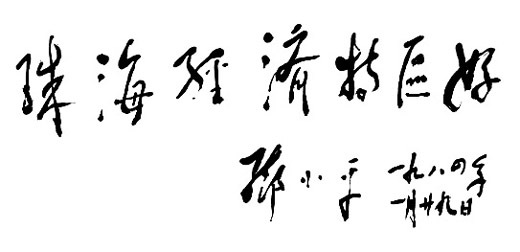 珠海經濟特区好
鄧小平 一九八四年
一月廿九日